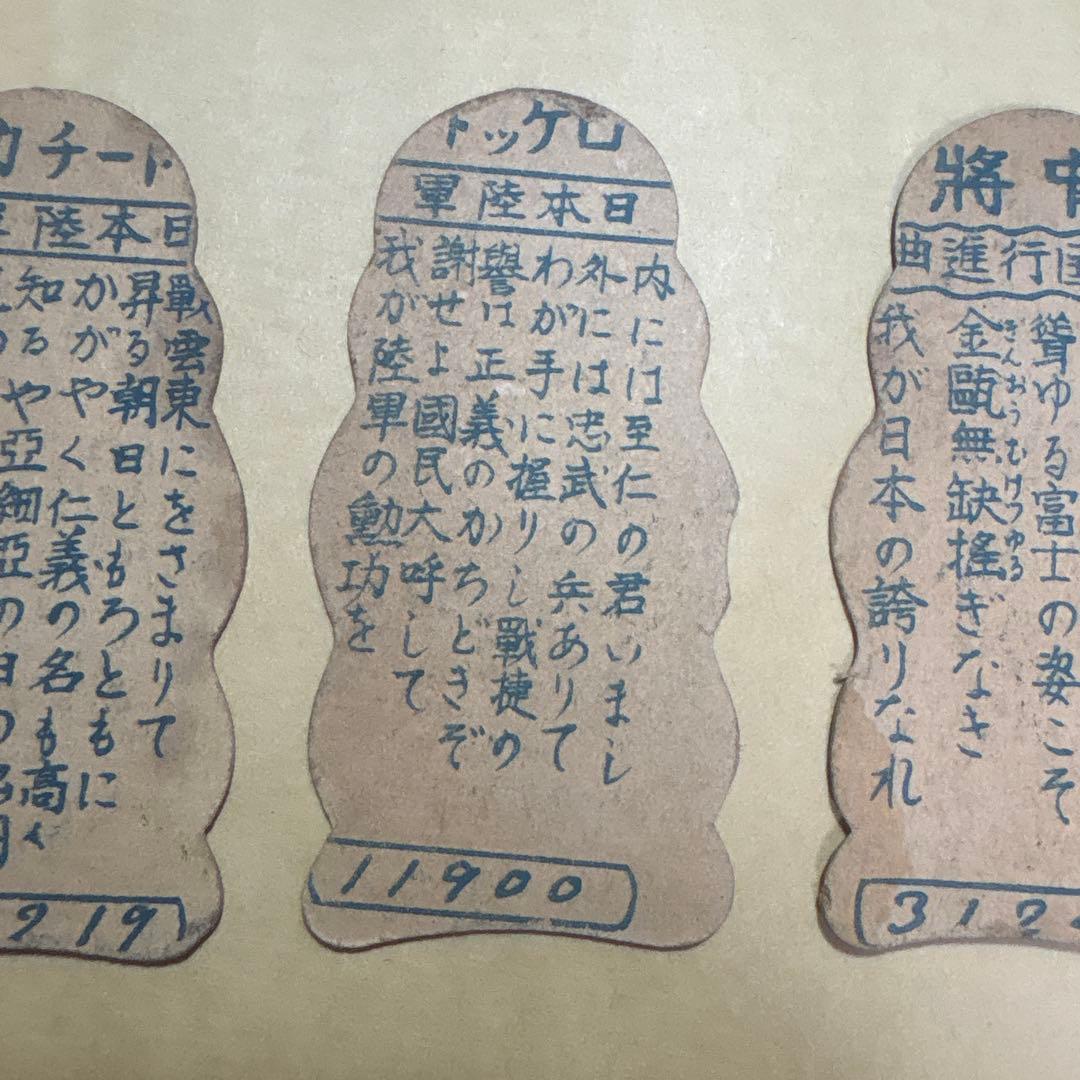 トーチカ
日本陸軍
戰雲東にをさまりて
昇る朝日ともろともに
かがやく仁義の名も高く
知るや亞細亞の日の
919
ロケット
日本陸軍
内には至仁の君いまし
外には忠武の兵ありて
わが手に握りし戰捷の
譽は正義のかちどきぞ
謝せよ國民大呼して
我が陸軍の勲功を
11900
中將
行進曲
聳ゆる富士の姿こそ
金甌無缺搖ぎなき
きんおうむけつゆる
我が日本の誇りなれ
312